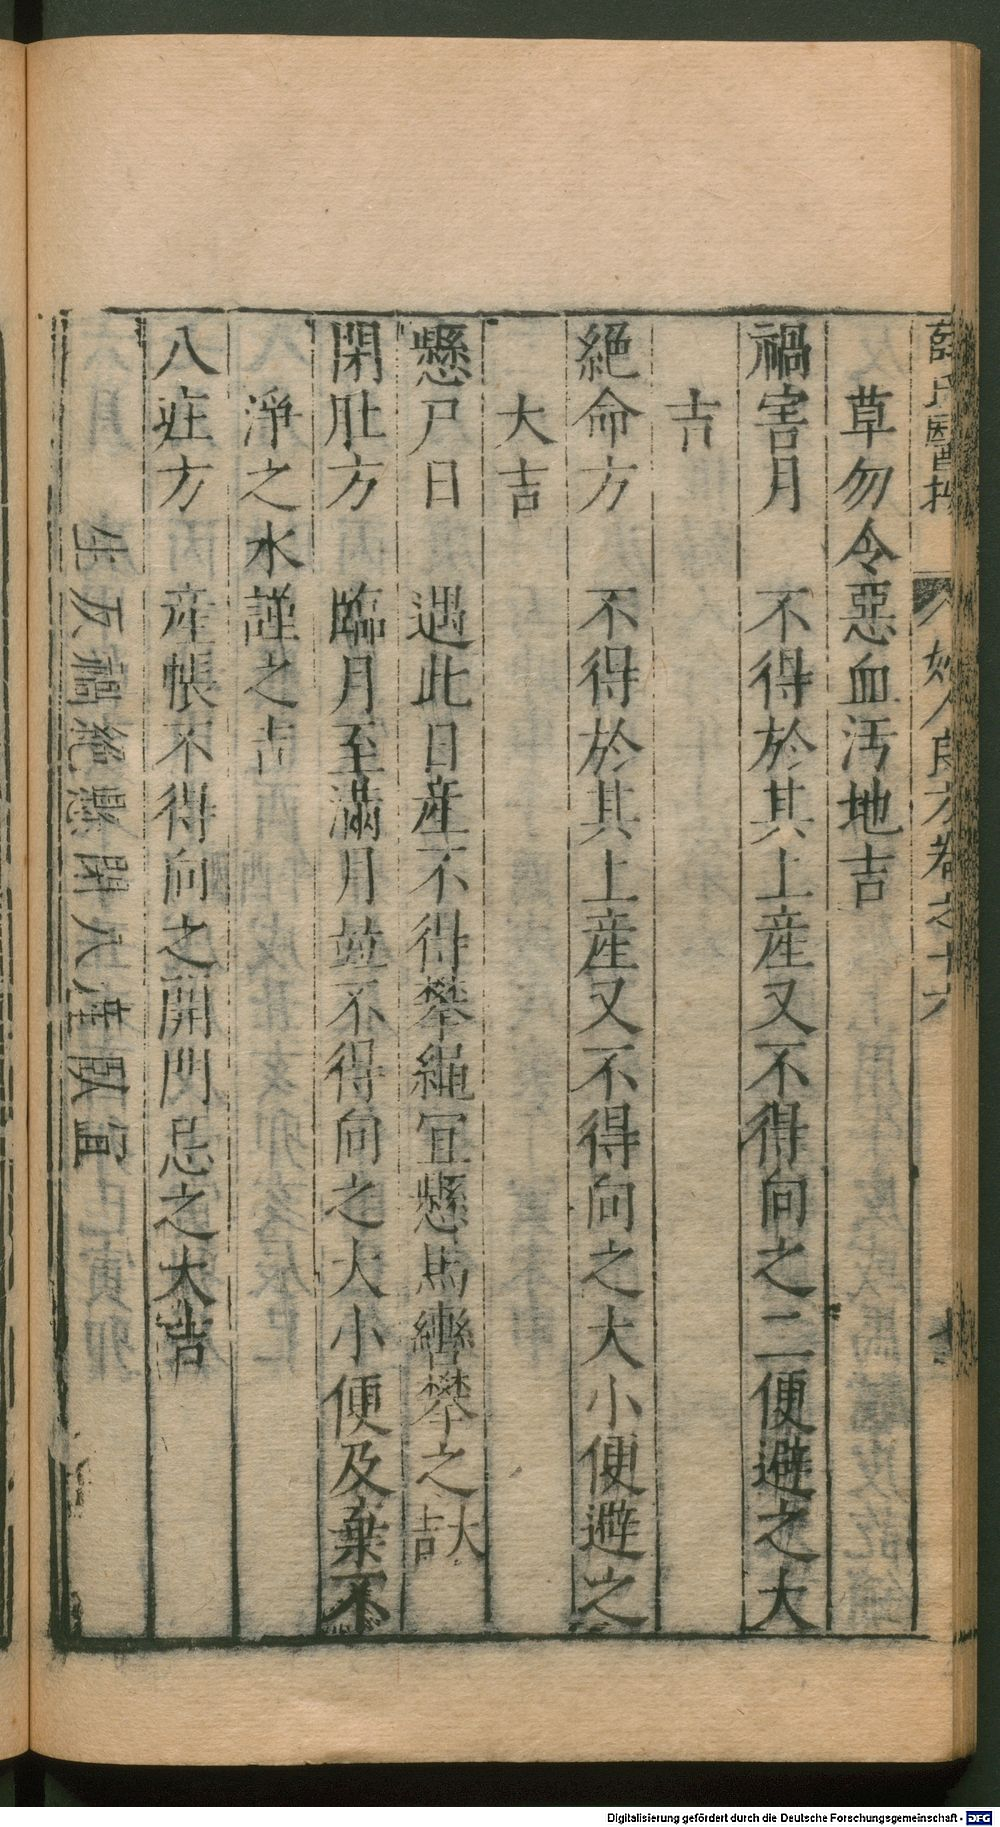 薛氏醫按 婦人良方卷之十六
草勿令惡血汚地吉
禍害月 不得於其上産又不得向之二便避之大
吉
絶命方 不得於其上産又不得向之大小便避之
大吉
懸尸日 遇此日産不得攀繩宜懸馬轡攀之大吉
閑肚方 臨月至滿月並不得向之大小便及棄不
淨之水謹之吉
八莊方 産帳不得向之開門忌之大吉
生 反 禍 絶 懸 閑 八 産 臥 宜
Digitalisierung gefördert durch die Deutsche Forschungsgemeinschaft - DFG